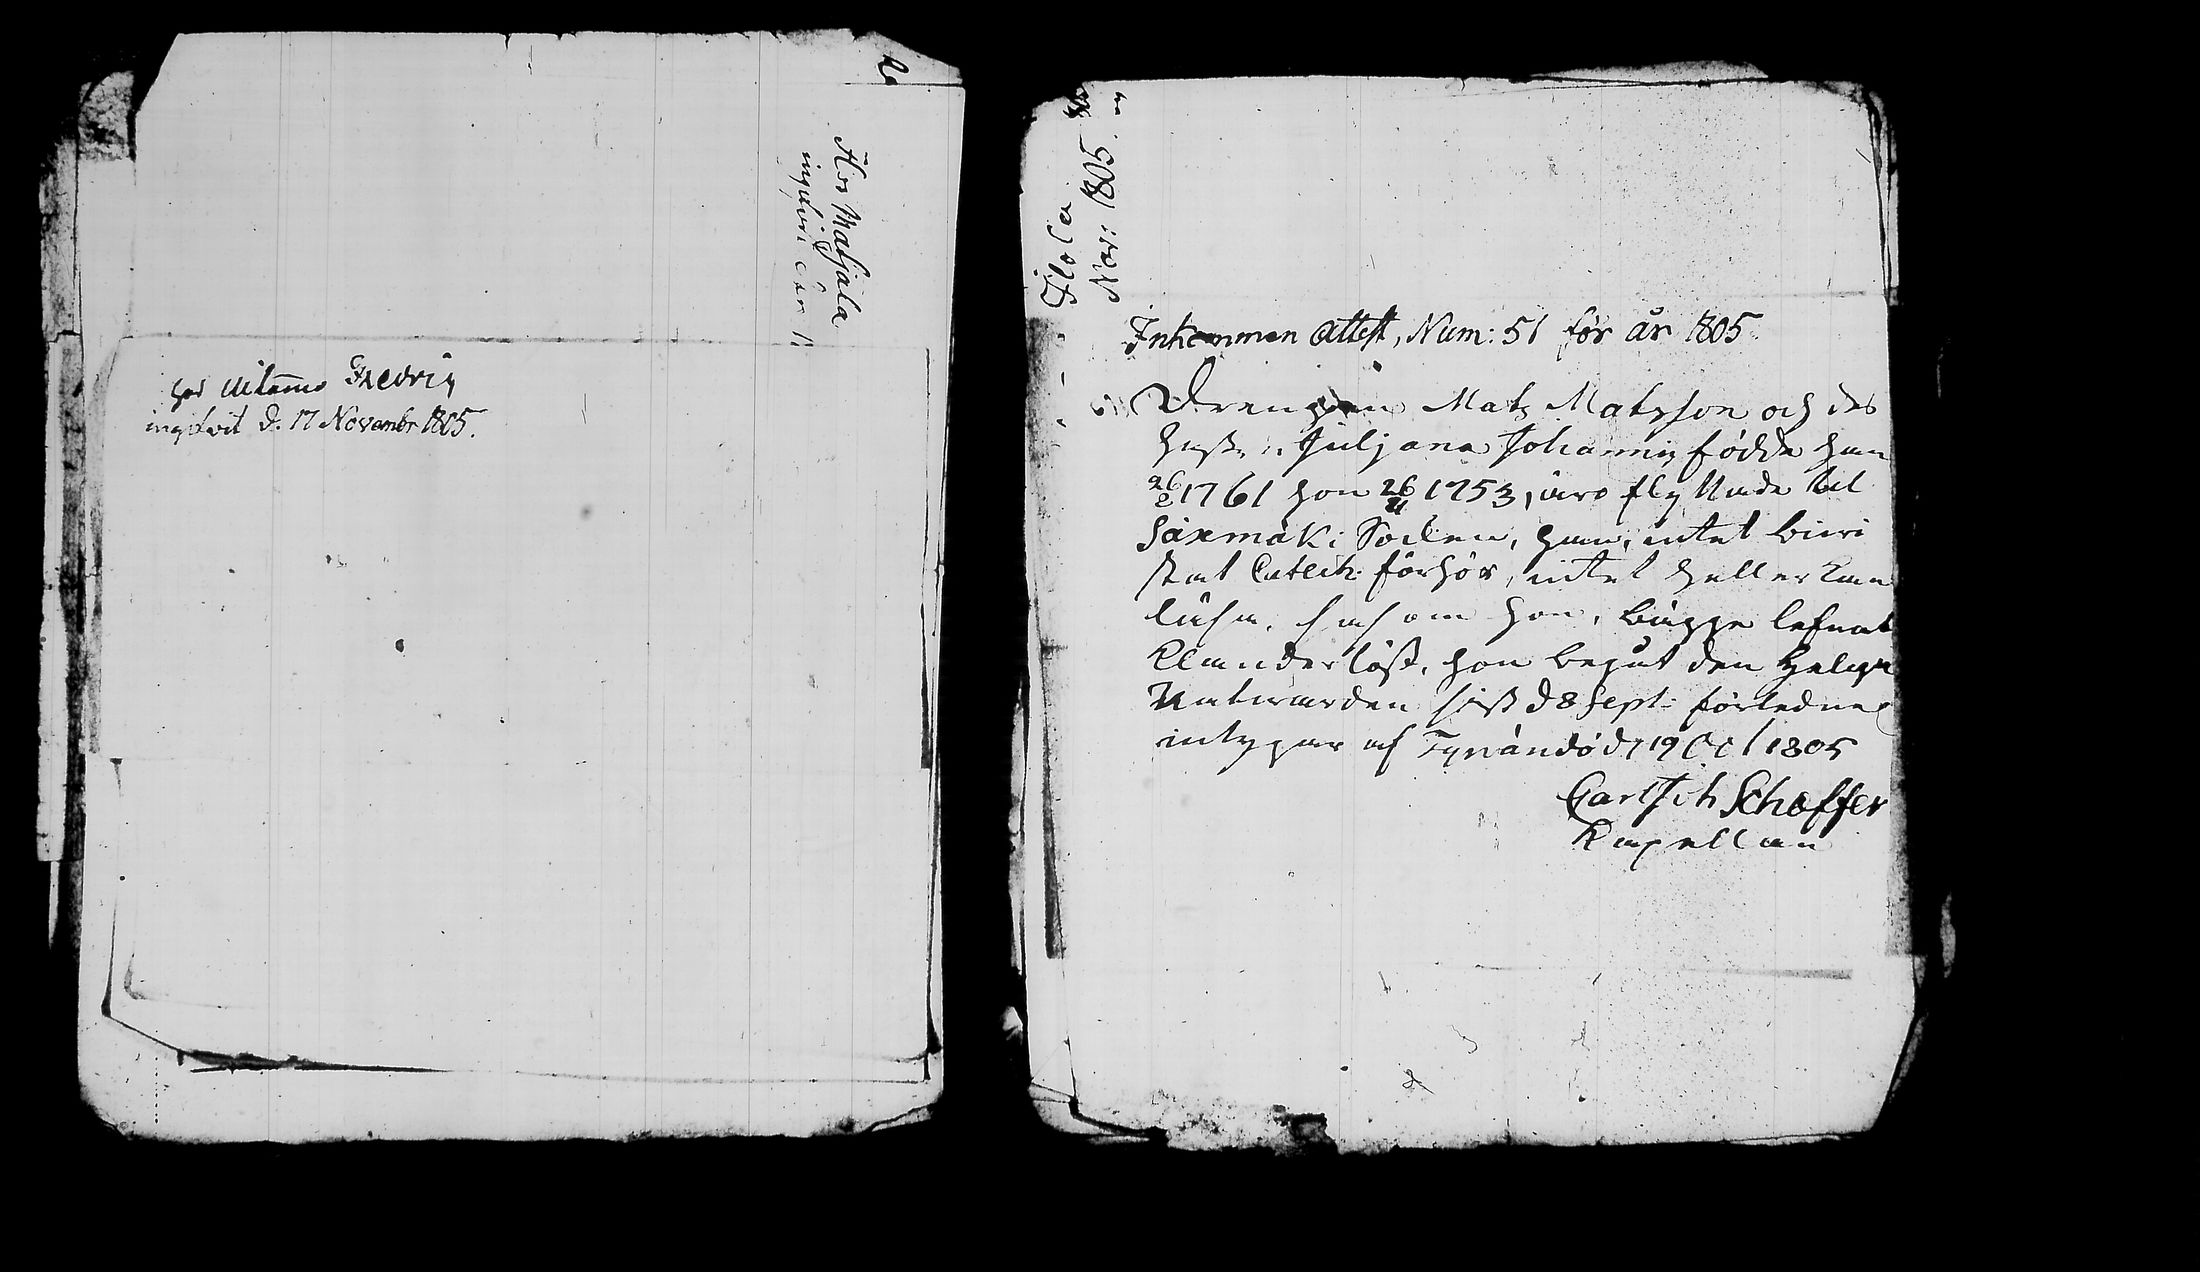 Hos Maljala
hos Fredrig
d. 17 Novembr 1805.
Nov: 1805.
Inkommen Attest, Num: 51 för år 1805
Drengen Matz Matzson och des
Hustr: Juljana Johannis födde han
26/2 1761 hon 26/4 1753, äro flyttade til
Säxmäki Socken, han, intet bivi
stat Catech: förhör, intet heller kan
läsa, såsom hon, bägge lefnat
Klanderlöst, hon begåt den Helga
Natwarden sist d 8 Sept: förledne
intygar af Tyrvändö d 19 Oct 1805
Carl Joh Schæffer
Kapellan